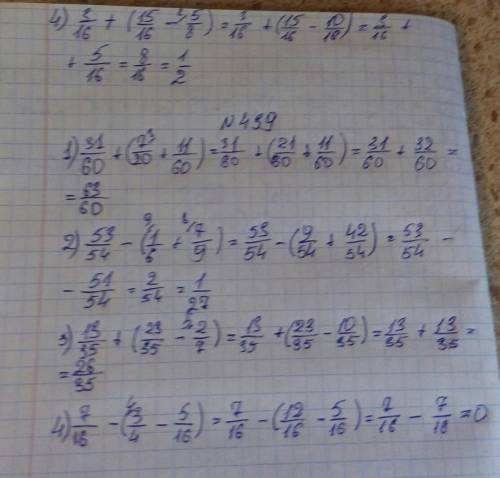 4) 3/16 + (15/16 - 5/8) = 3/16 + (15/16 - 10/16) = 3/16 +
+ 5/16 = 8/16 = 1/2
№439
1) 31/60 + (7/20 + 11/60) = 31/60 + (21/60 + 11/60) = 31/60 + 32/60 =
= 63/60
2) 53/54 - (1/6 + 7/9) = 53/54 - (9/54 + 42/54) = 53/54 -
- 51/54 = 2/54 = 1/27
3) 13/35 + (23/35 - 2/7) = 13/35 + (23/35 - 10/35) = 13/35 + 13/35 =
= 26/35
4) 7/16 - (3/4 - 5/16) = 7/16 - (12/16 - 5/16) = 7/16 - 7/16 = 0